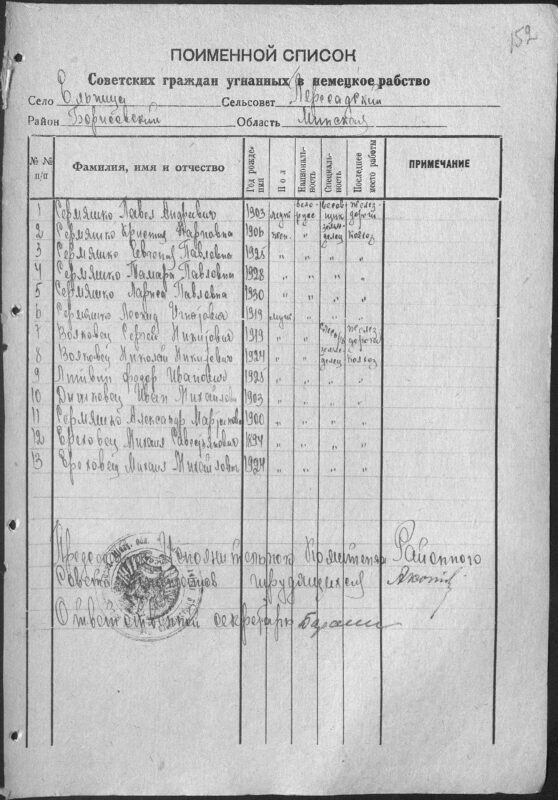 152
ПОИМЕННОЙ СПИСОК
Советских граждан угнанных в немецкое рабство
Село Ельница Сельсовет Пересадский
Район Борисовский Область Минская
№ № п/п Фамилия, имя и отчество Год рождения Пол Национальность Специальность Последнее место работы ПРИМЕЧАНИЕ
1 Сермяшко Павел Андреевич 1903 муж бело русс желез дороги
2 Сермяшко Христина Карповна 1906 жен. " земледелец колхоз
3 Сермяшко Евгения Павловна 1925 " " " "
4 Сермяшко Тамара Павловна 1928 " " " "
5 Сермяшко Лариса Павловна 1930 " " "
6 Сермяшко Леонид 1919 муж " " "
7 Волковец Сергей 1919 " " слесарь желез дороги
8 Волковец Николай 1924 " " земледелец колхоз
9 Литвин Федор Иванович 1925 " " " "
10 Иван Михайлович 1903 " " " "
11 Сермяшко Александр 1900 " " " "
12 Ероховец Михаил 1894 " " " "
13 Ероховец Михаил Михайлович 1924 " " " "
Председ. Исполнительного Комитета Районного
Совета депутатов трудящихся
Ответственный секретарь